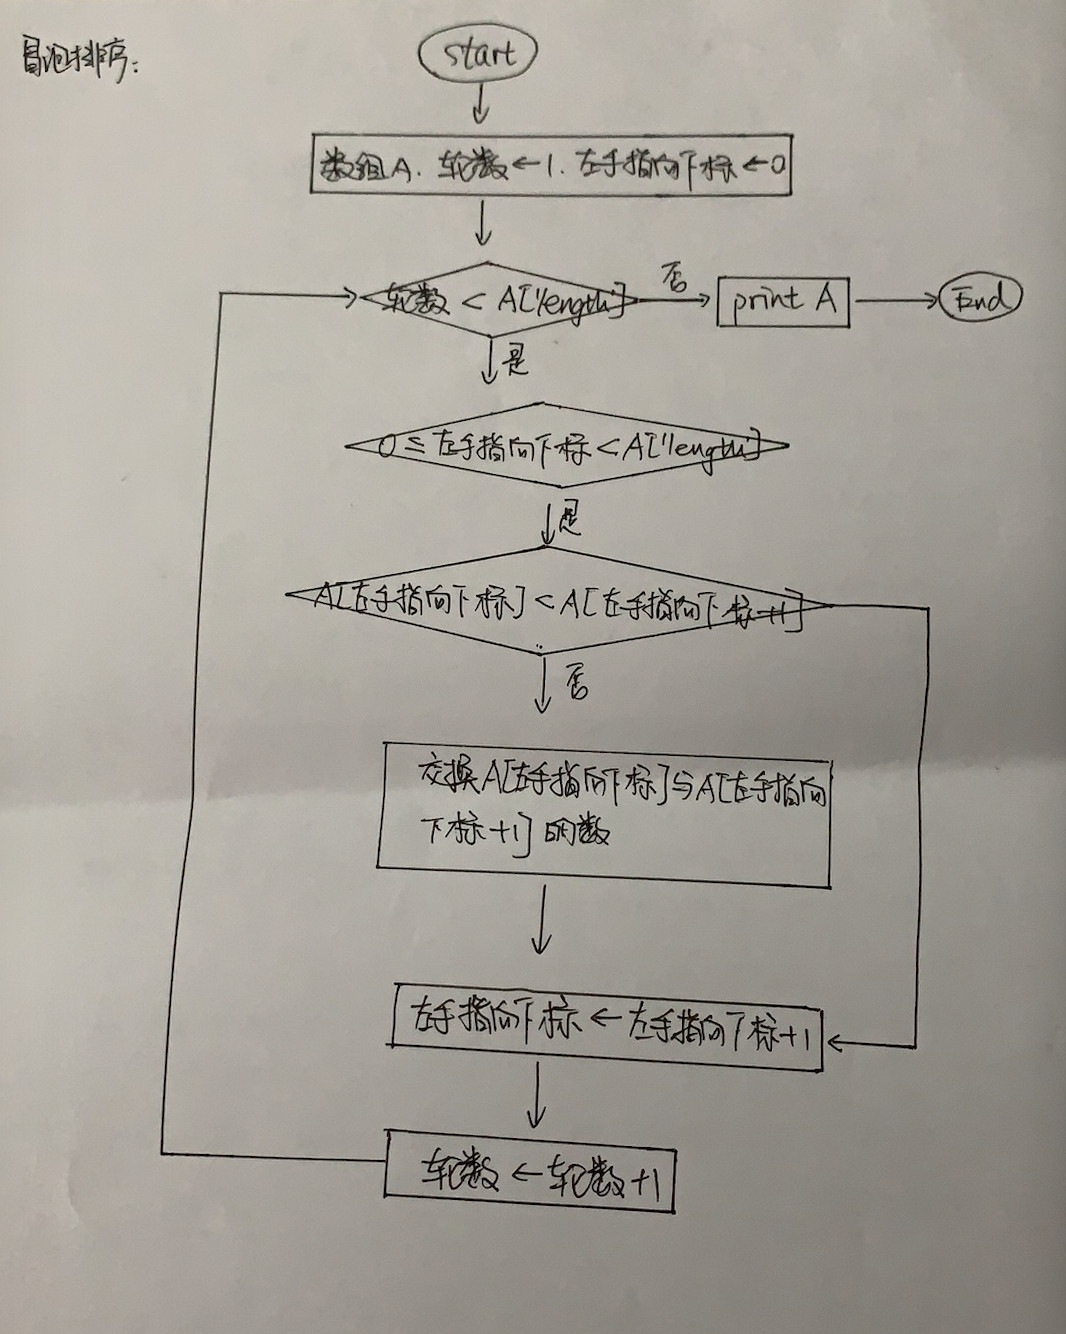 冒泡排序：
start
数组A. 轮数←1. 左手指向下标←0
轮数 < A['length']
否
print A
End
是
0 ≤ 左手指向下标 < A['length']
是
A[左手指向下标] < A[左手指向下标+1]
否
交换A[左手指向下标]与A[左手指向
下标+1]的数
左手指向下标 ← 左手指向下标+1
轮数 ← 轮数+1